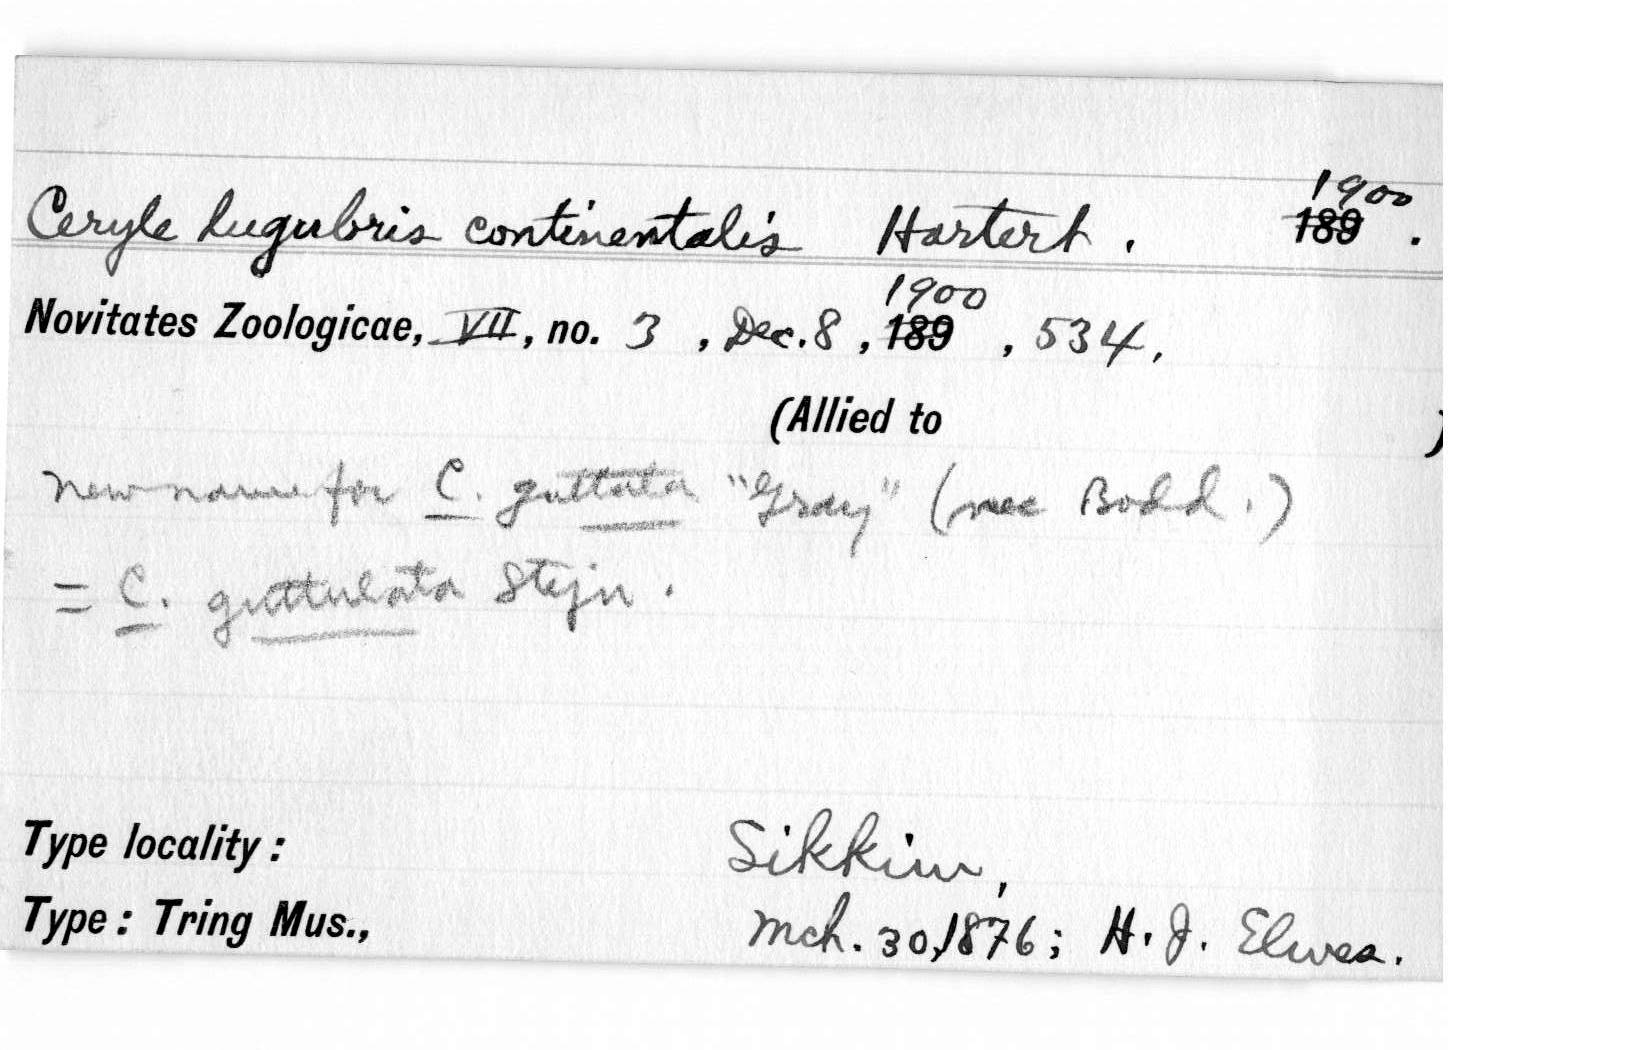 Ceryle lugubris continentalis Hartert. 1900 189 .
Novitates Zoologicae, VII, no. 3, Dec. 8, 1900 189 , 534.
(Allied to )
New name for C. guttata "Gray" (nec Bodd.)
= C. guttulata Stejn.
Type locality: Sikkim,
Type: Tring Mus., Mch. 30, 1876; H. J. Elwes.